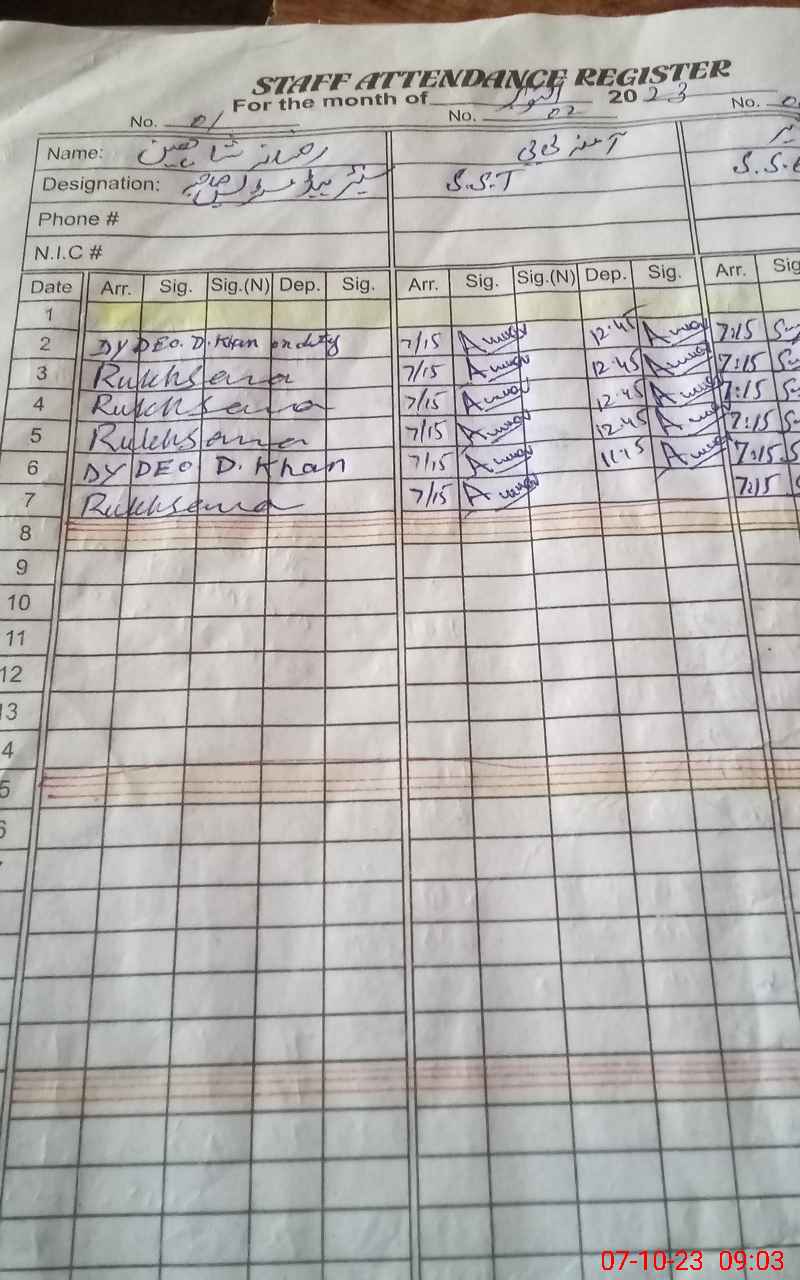 STAFF ATTENDANCE REGISTER
For the month of اکتوبر 2023
No. 01 No. 02 No.
Name: رخسانہ شاہین آمنہ بی بی
Designation: سینئر ہیڈ مسٹریس صاحبہ S.S.T S.S.
Phone #
N.I.C #
Date Arr. Sig. Sig.(N) Dep. Sig. Arr. Sig. Sig.(N) Dep. Sig. Arr. Sig
1
2 DY DEO. D.Khan on duty 7/15 12.45 7:15
3 Rukhsana 7/15 12.45 7:15
4 Rukhsana 7/15 12.45 7:15
5 Rukhsana 7/15 12.45 7:15
6 DY DEO D.Khan 7/15 11.15 7:15
7 Rukhsana 7/15 7:15
8
9
10
11
12
13
4
5
6
07-10-23 09:03